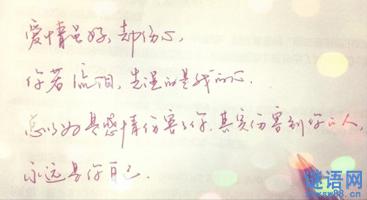 爱情虽好,却伤心,
你若流泪,先湿的是我的心.
总以为是感情伤害了你,其实伤害到你的人,
永远是你自己.
谜语网
www88.cn